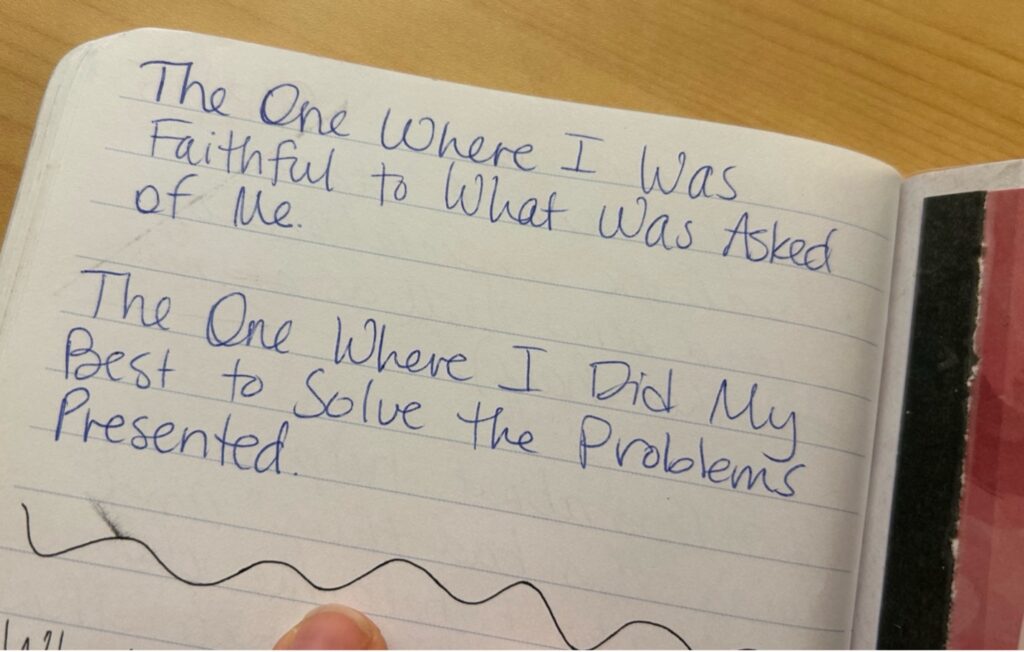 The One Where I Was
Faithful to What Was Asked
of Me.
The One Where I Did My
Best to Solve the Problems
Presented.